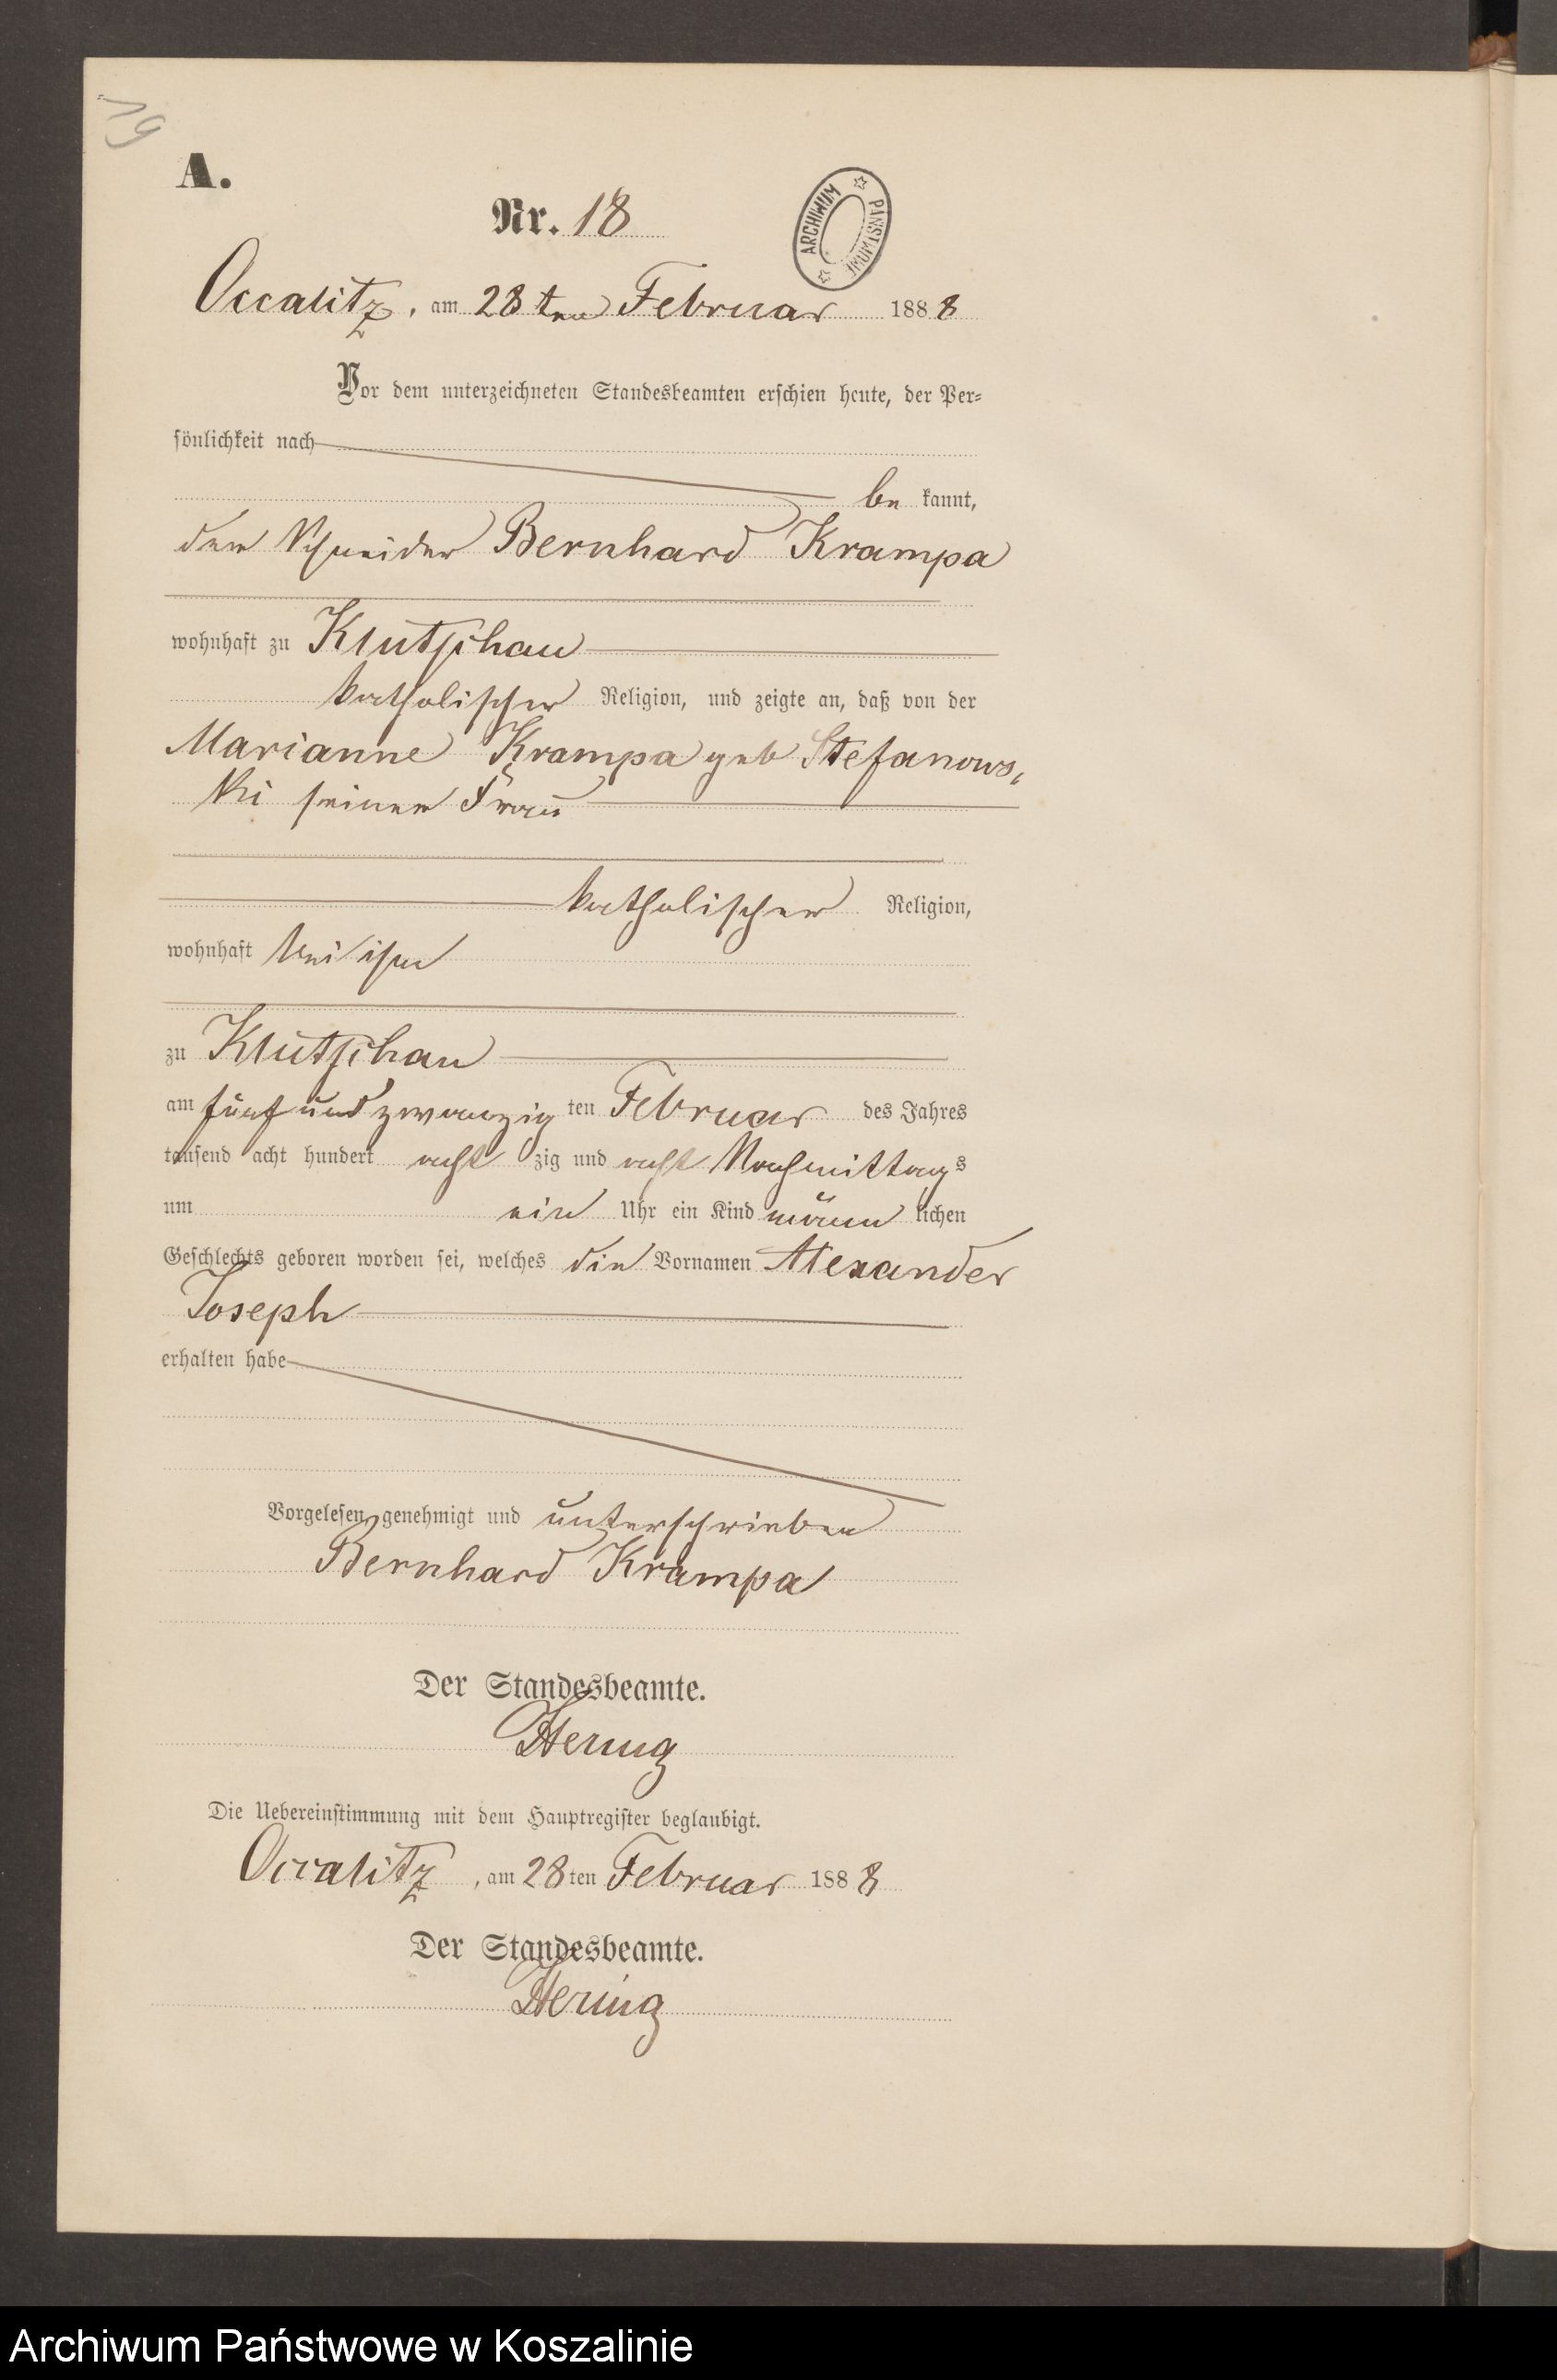 19
A.
Nr. 18
ARCHIWUM PAŃSTWOWE
Occalitz, am 28ten Februar 1888
Vor dem unterzeichneten Standesbeamten erschien heute, der Per-
sönlichkeit nach
be kannt,
der Schneider Bernhard Krampa
wohnhaft zu Klutschau
katholischer Religion, und zeigte an, daß von der
Marianne Krampa geb Stefanows,
ki seiner Frau
katholischer Religion,
wohnhaft bei ihm
zu Klutschau
am fünf und zwanzig ten Februar des Jahres
tausend acht hundert acht zig und acht Nachmittags
um ein Uhr ein Kind männ lichen
Geschlechts geboren worden sei, welches die Vornamen Alexander
Joseph
erhalten habe
Vorgelesen, genehmigt und unterschrieben
Bernhard Krampa
Der Standesbeamte.
Hering
Die Uebereinstimmung mit dem Hauptregister beglaubigt.
Occalitz, am 28ten Februar 1888
Der Standesbeamte.
Hering
Archiwum Państwowe w Koszalinie